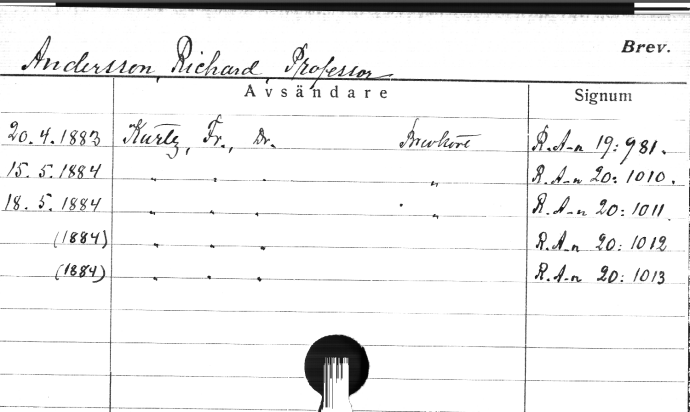 Brev.
Andersson, Richard, Professor
Avsändare Signum
20.4.1883 Kurtz, Fr., Dr. R.A-n 19:981.
15.5.1884 " " " " R.A-n 20:1010.
18.5.1884 " " " " R.A-n 20:1011.
(1884) " " " R.A-n 20:1012
(1884) " " " R.A-n 20:1013